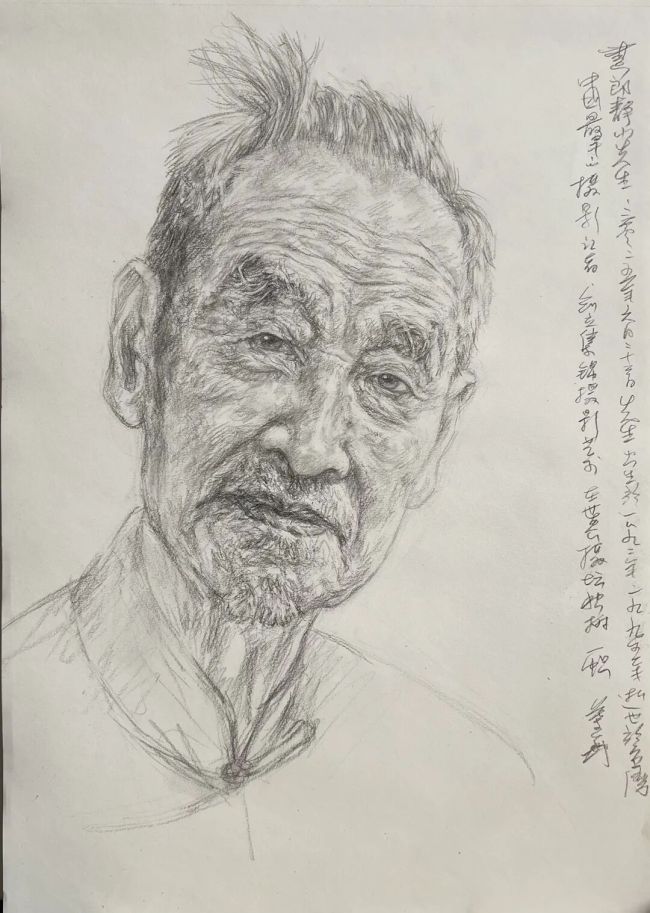 畫郎静山先生.二零二五年六月二十日 先生出生於一八九二年.一九九五年逝世於台湾
中國最早之摄影记者.创立集锦摄影艺术 在世界摄坛独树一帜